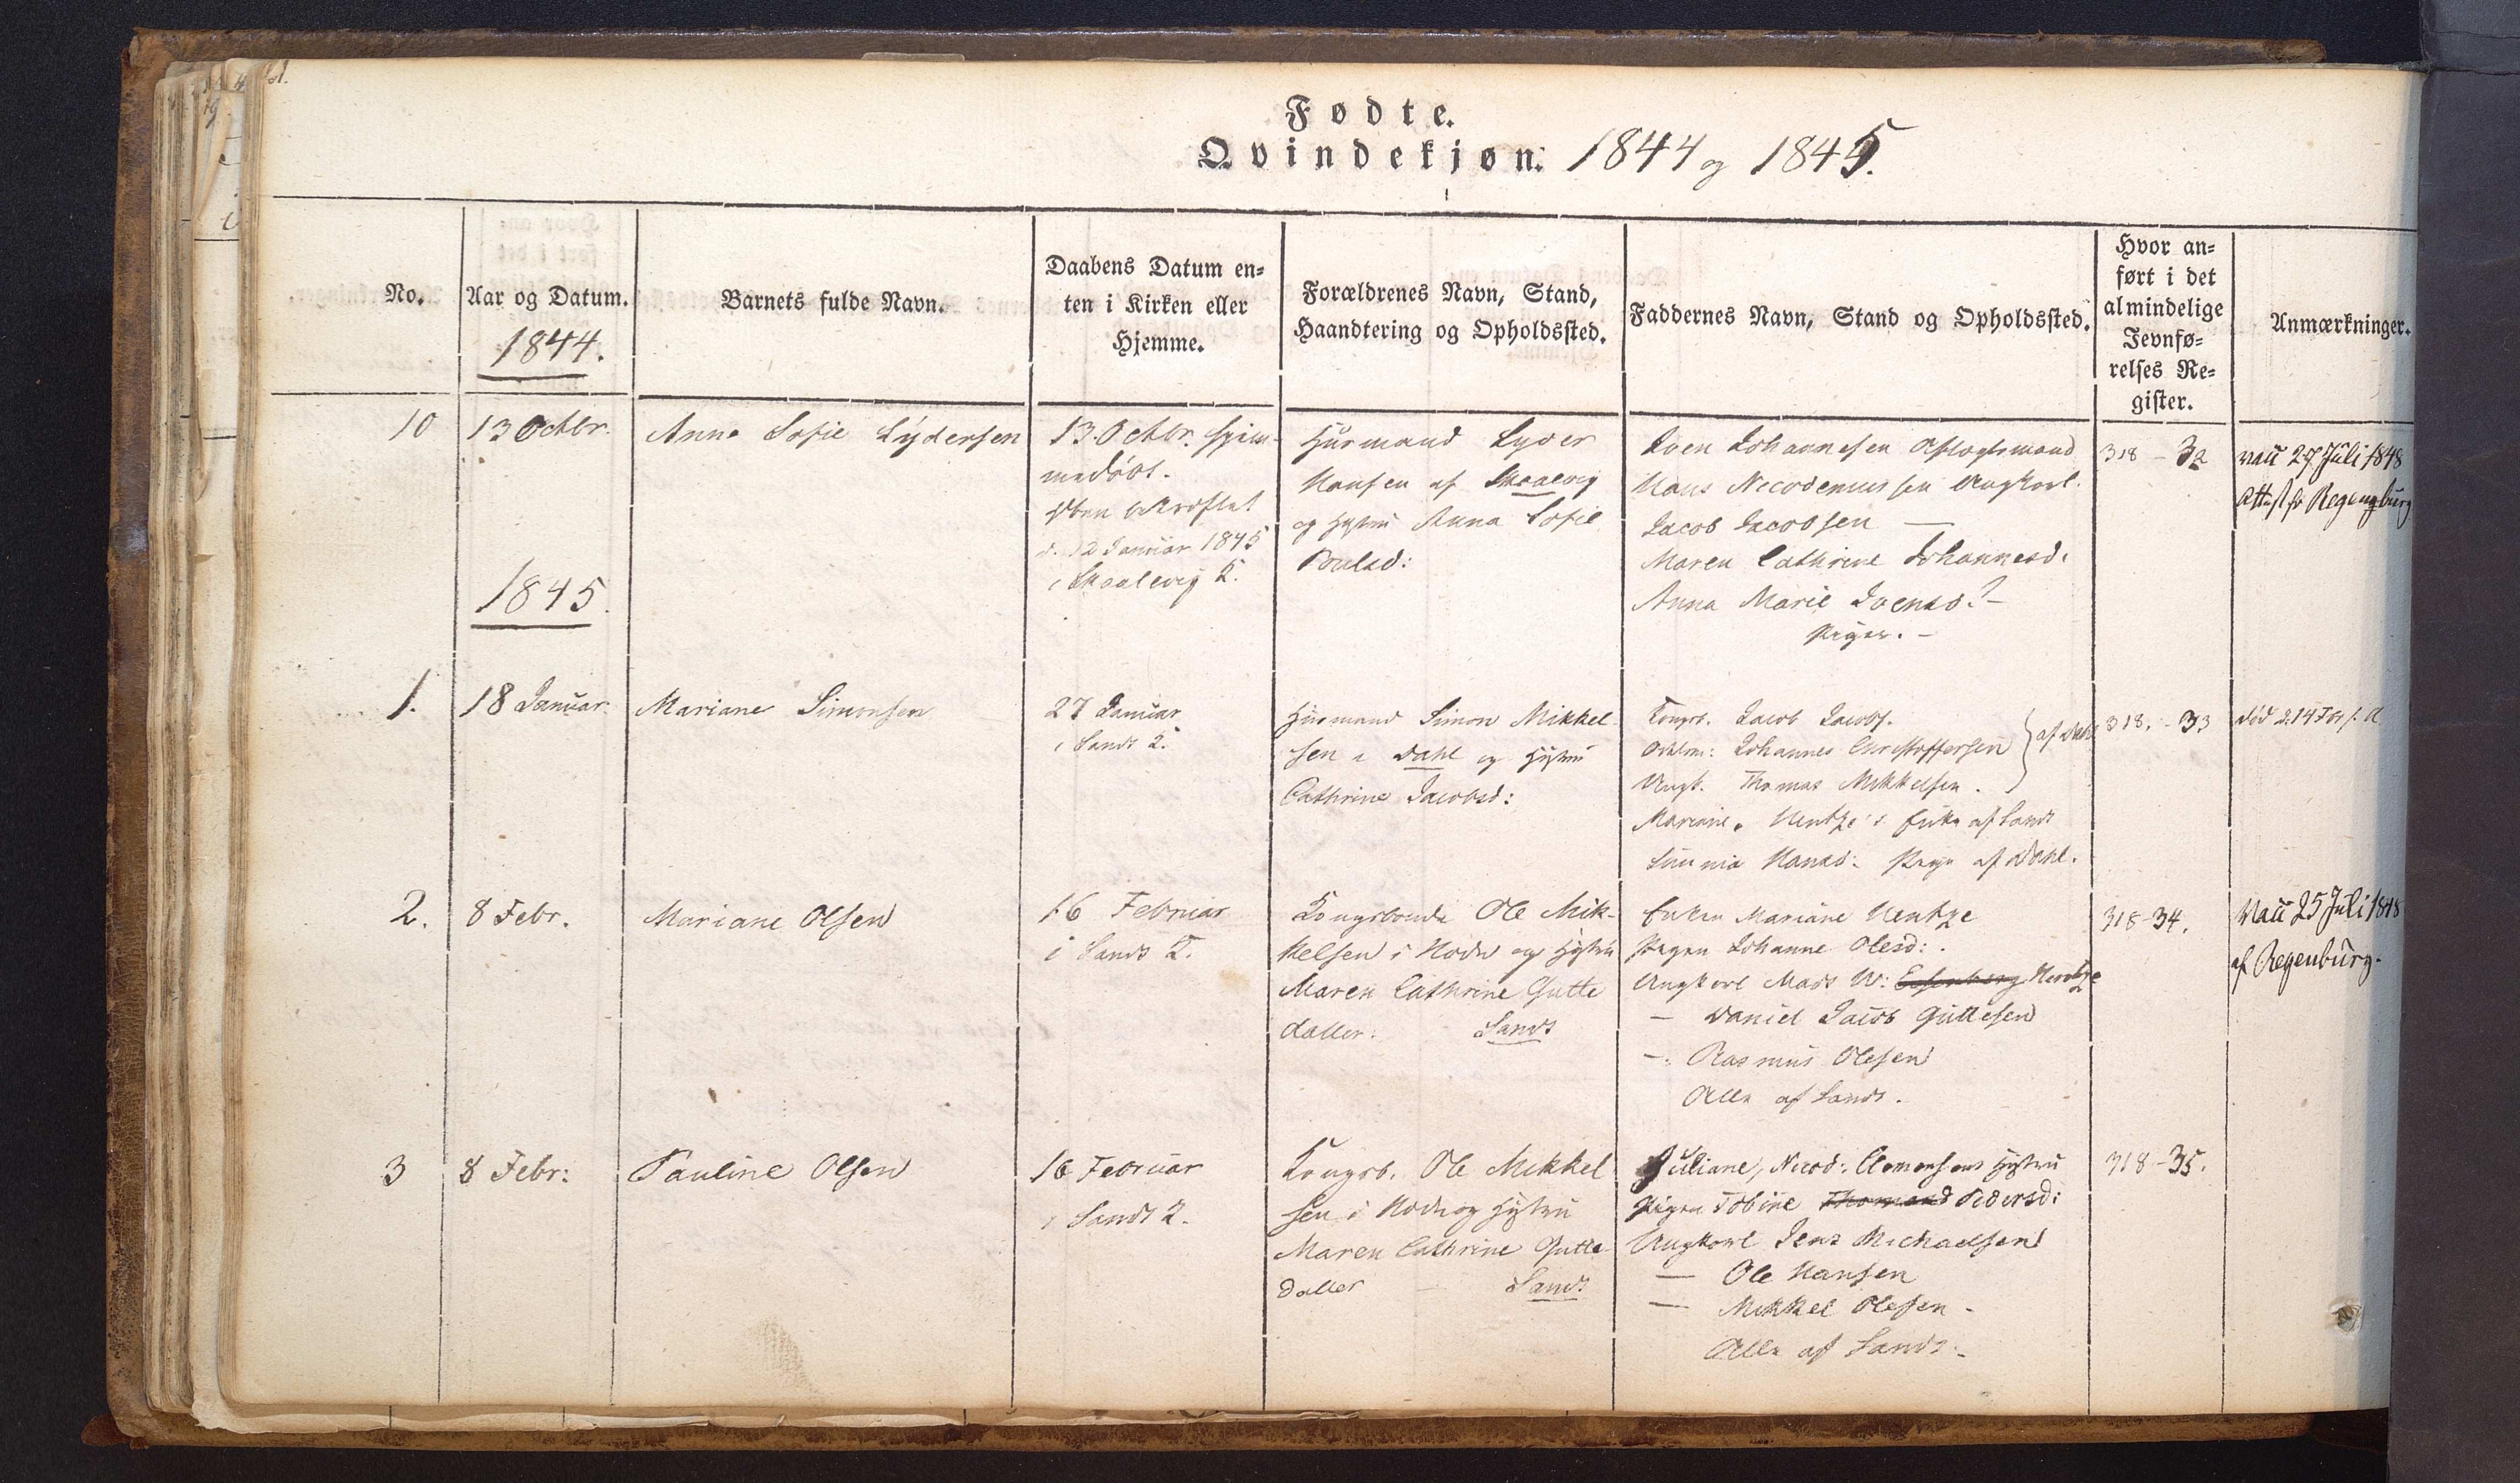 Fødte.
Qvindekjøn. 1844 og 1845.
No.
Aar og Datum.
1844.
Barnets fulde Navn.
Daabens Datum en=
ten i Kirken eller
Hjemme.
Forældrenes Navn, Stand,
Haandtering og Opholdssted.
Faddernes Navn, Stand og Opholdssted.
Hvor an=
ført i det
almindelige
Jevnfø=
relses Re=
gister.
Anmærkninger.
10
13 Octbr.
Anna Sofie Lydersen
13. Octbr. hjem-
medöbt.
d. 12 Januar 1845
i Skaalevig K.
Huusmand Lyder
Hansen af Skaalevig
og Hustru Anna Sofie
Poulsd:
Joen Johannesen Aftægtsmand
Hans Necodemussen Ungkarl.
Jacob Jacobsen —
Maren Cathrine Johannesd.
Anna Marie Joensd. —
Piger. —
318 - 32
vacc 27 Juli 1848
Attest fr Regenburg
1845.
1.
18 Januar.
Mariane Simonsen
27 Januar
i Sands K.
Huusmand Simon Mikkel
sen i Dahl og Hustru
Cathrine Jacobsd:
Kongsb. Jacob Jacobs.
Johannes Christoffersen
Ungk. Thomas Mikkelsen.
af Dahl
Mariane Hentze's Enke af Sand
Sunnia Hansd: Pige af Dahl.
318. - 33
död
2.
8 Febr.
Mariane Olsen
16 Februar
i Sands K.
Kongsbonde Ole Mik-
kelsen i Todn og Hustru
Maren Cathrine Gutte
datter. Sands
Enken Mariane Hentze
Pigen Johanne Olesd:.
Ungkarl Mads W: Hentze
— Daniel Jacob Guttesen
— Rasmus Olesen
Alle af Sands.
318-34.
Vacc 25 Juli 1848
af Regenburg.
3
8 Febr:
Pauline Olsen
16 Februar
i Sands K.
Kongsb. Ole Mikkel
sen i Todn og Hustru
Maren Cathrine Gutte
datter — Sands
Juliane, Necod: Clemensens Hustru
Pigen Tobine Thomasd Pedersd:
Ungkarl Jens Michaelsen
— Ole Hansen
— Mikkel Olesen -
Alle af Sands. -
318-35.